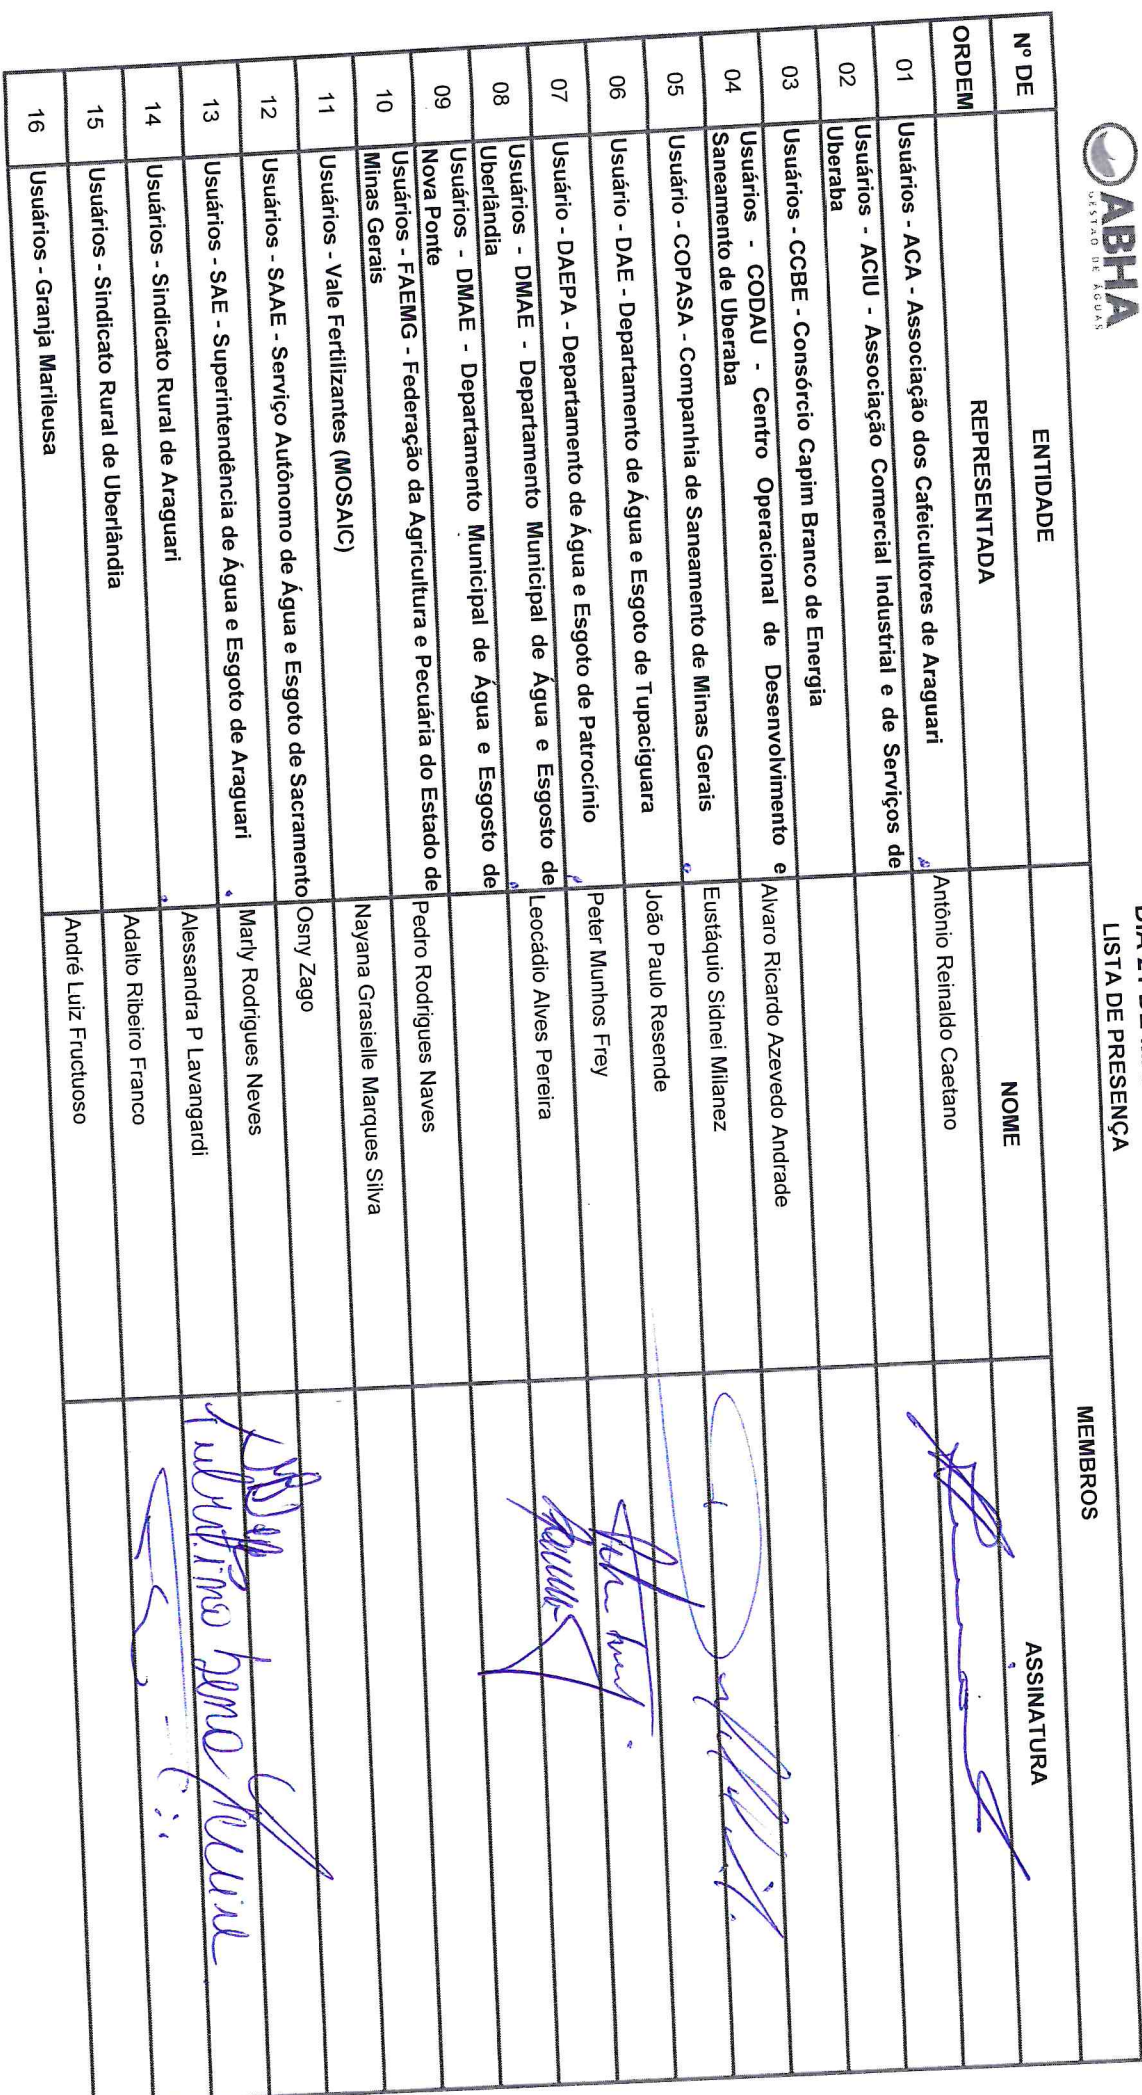 ABHA
GESTÃO DE ÁGUAS
LISTA DE PRESENÇA
MEMBROS
Nº DE
ORDEM
ENTIDADE
REPRESENTADA
NOME
ASSINATURA
01
Usuários - ACA - Associação dos Cafeicultores de Araguari
Antônio Reinaldo Caetano
02
Usuários - ACIU - Associação Comercial Industrial e de Serviços de
Uberaba
03
Usuários - CCBE - Consórcio Capim Branco de Energia
04
Usuários - CODAU - Centro Operacional de Desenvolvimento e
Saneamento de Uberaba
Alvaro Ricardo Azevedo Andrade
05
Usuário - COPASA - Companhia de Saneamento de Minas Gerais
Eustáquio Sidnei Milanez
06
Usuário - DAE - Departamento de Água e Esgoto de Tupaciguara
João Paulo Resende
07
Usuário - DAEPA - Departamento de Água e Esgoto de Patrocínio
Peter Munhos Frey
08
Usuários - DMAE - Departamento Municipal de Água e Esgosto de
Uberlândia
Leocádio Alves Pereira
09
Usuários - DMAE - Departamento Municipal de Água e Esgosto de
Nova Ponte
10
Usuários - FAEMG - Federação da Agricultura e Pecuária do Estado de
Minas Gerais
Pedro Rodrigues Naves
11
Usuários - Vale Fertilizantes (MOSAIC)
Nayana Grasielle Marques Silva
12
Usuários - SAAE - Serviço Autônomo de Água e Esgoto de Sacramento
Osny Zago
13
Usuários - SAE - Superintendência de Água e Esgoto de Araguari
Marly Rodrigues Neves
14
Usuários - Sindicato Rural de Araguari
Alessandra P Lavangardi
15
Usuários - Sindicato Rural de Uberlândia
Adalto Ribeiro Franco
16
Usuários - Granja Marileusa
André Luiz Fructuoso